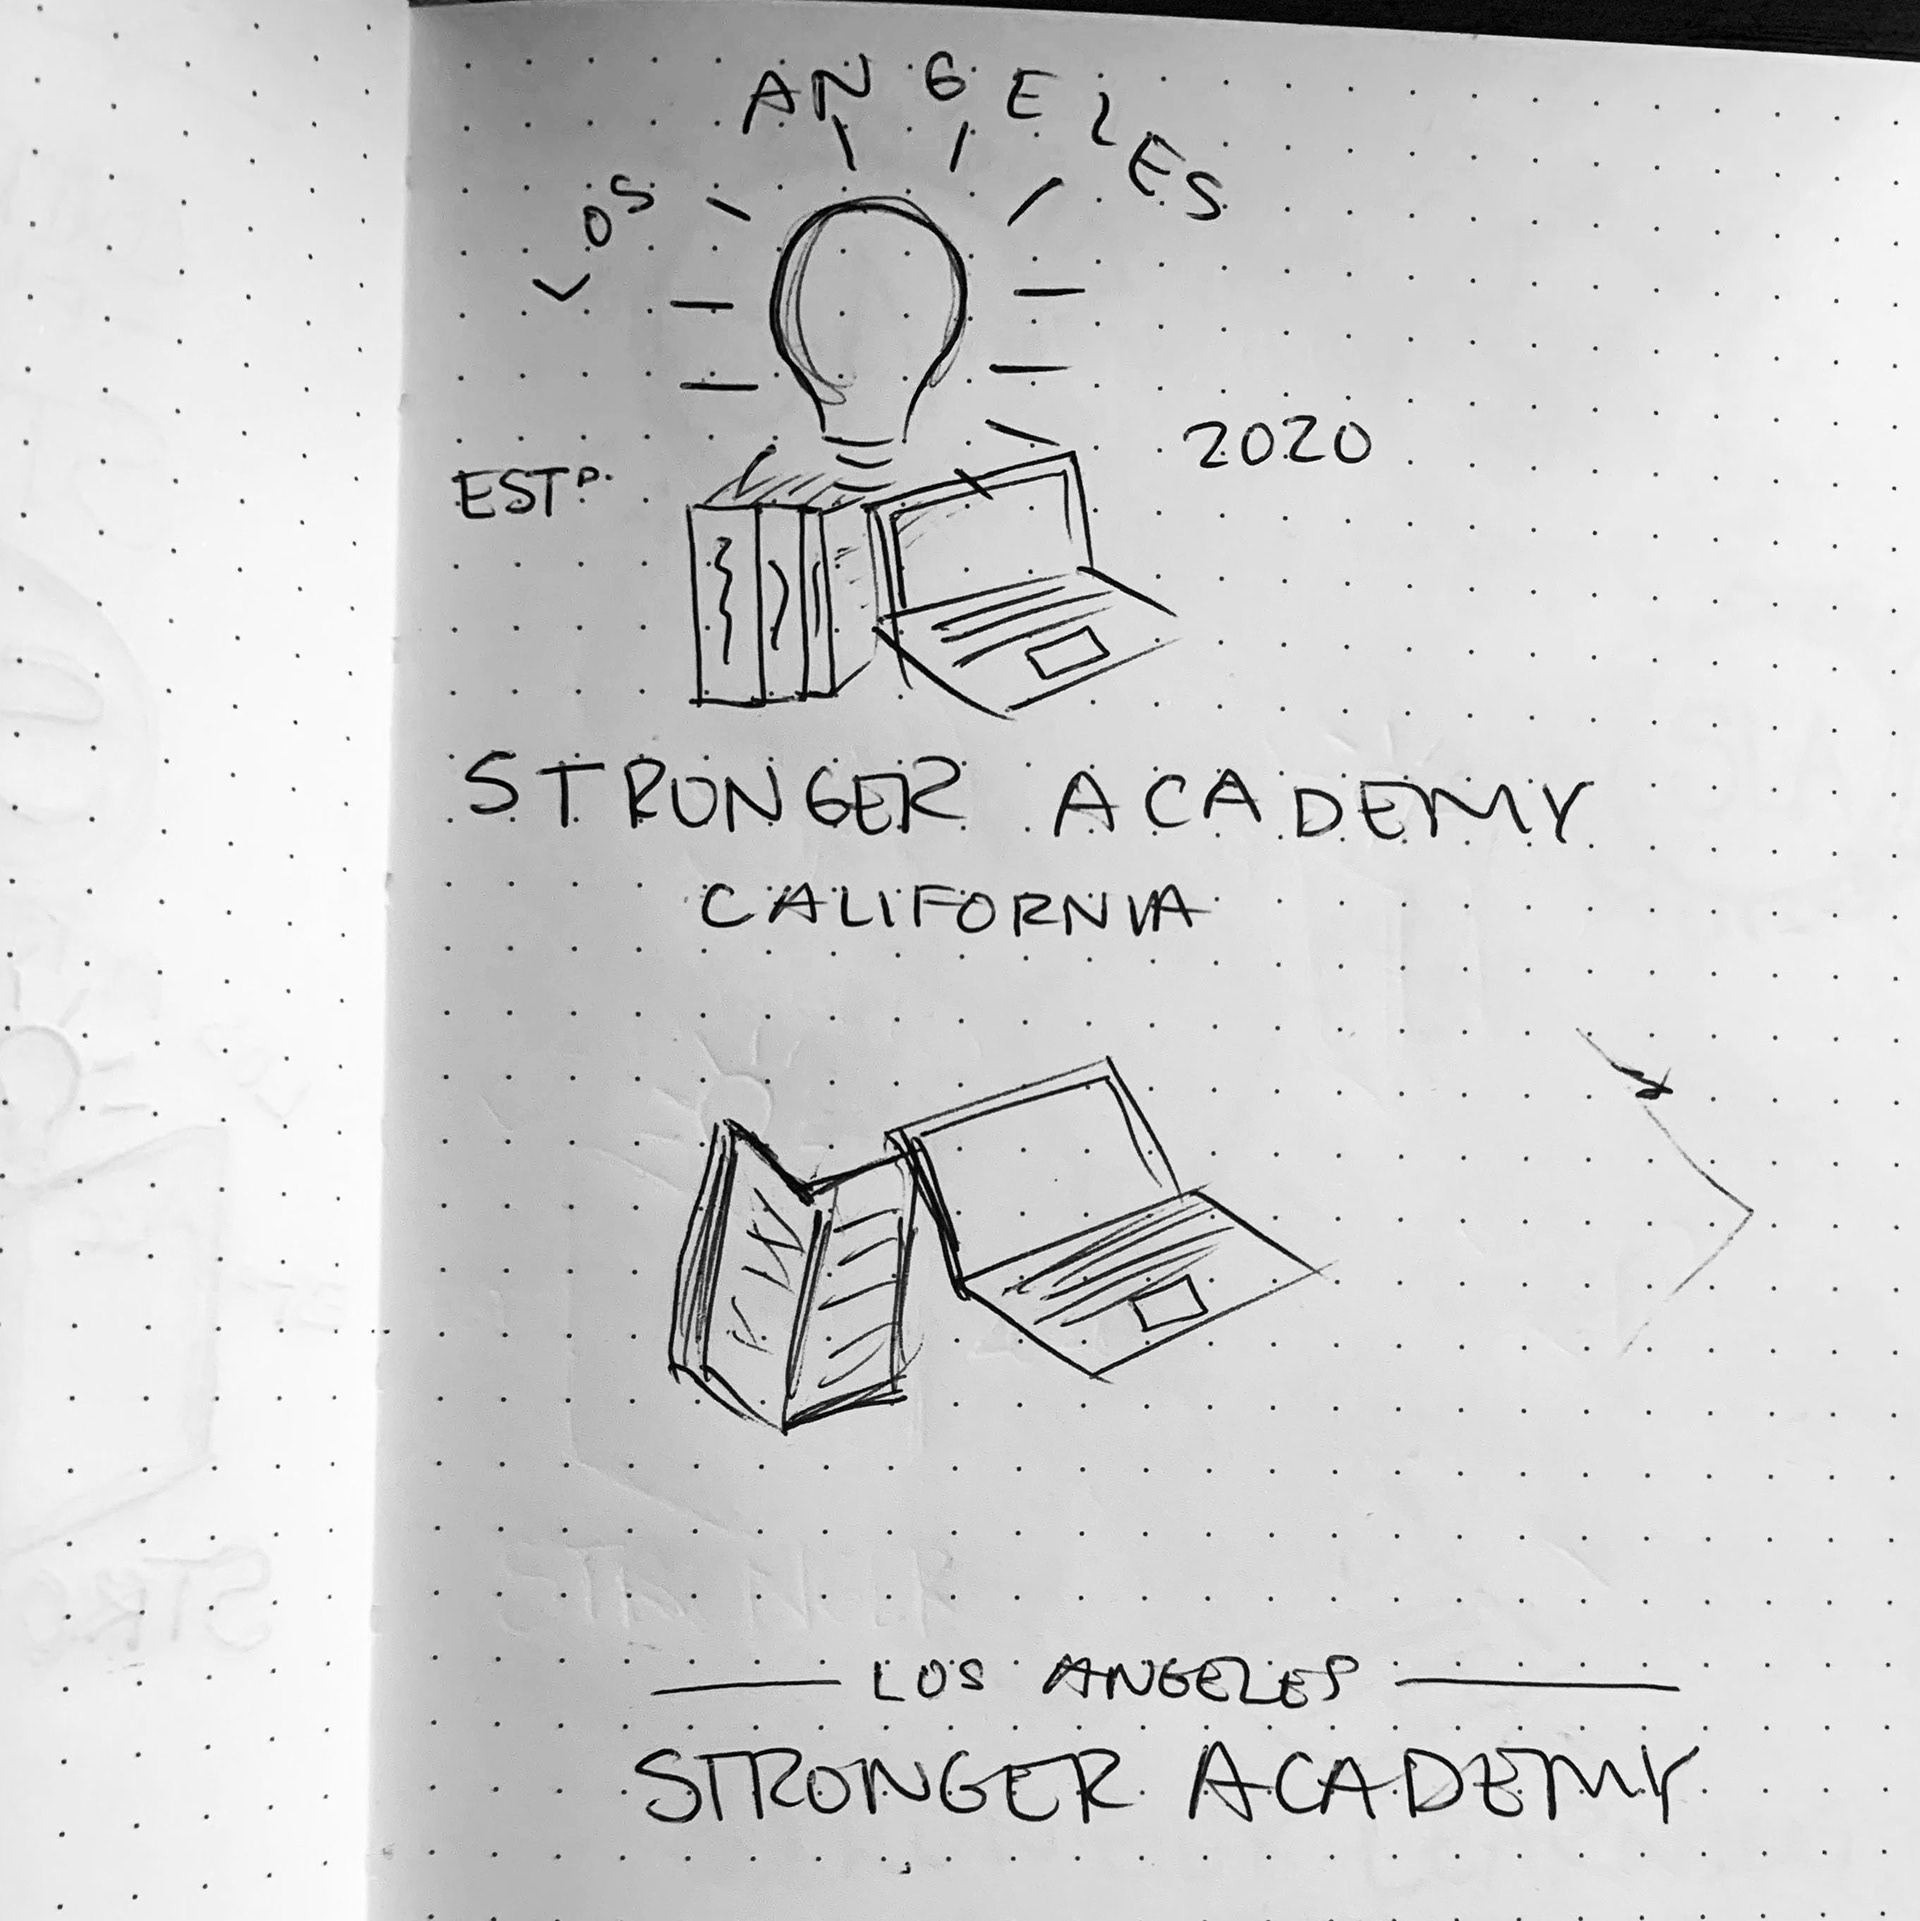 LOS ANGELES
ESTD. 2020
STRONGER ACADEMY
CALIFORNIA
LOS ANGELES
STRONGER ACADEMY